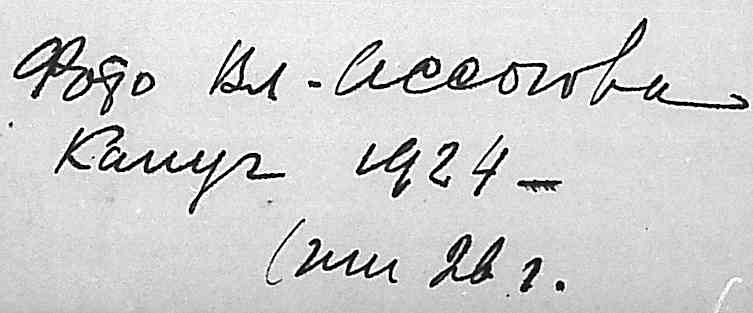 Фото Вл. Ассонова
Калуга 1924 –
(или 26 г.